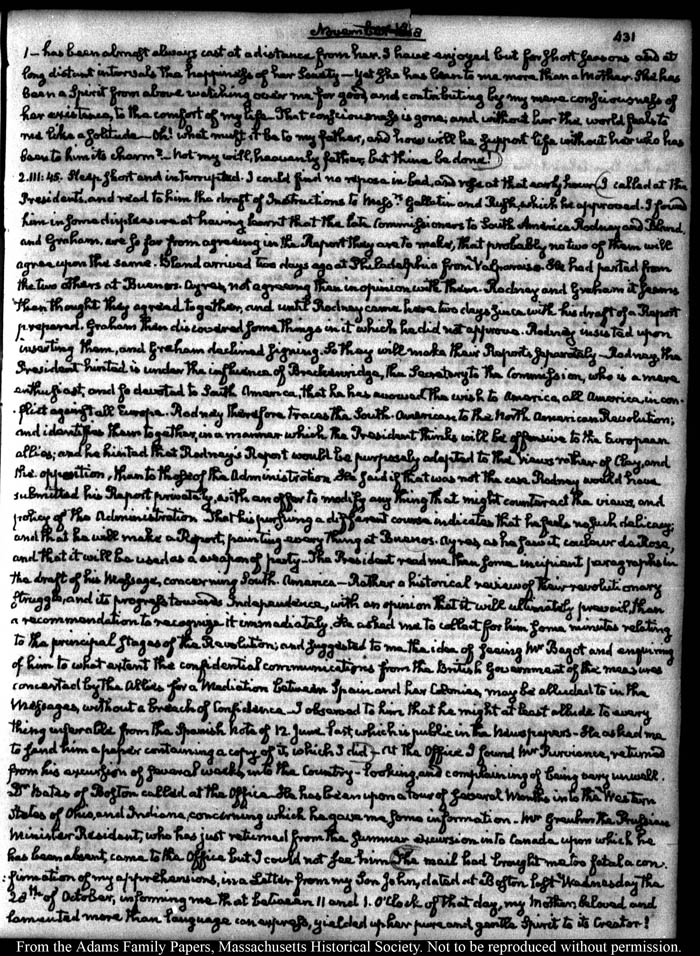 November 1818
431
1 – has been almost always cast at a distance from her. I have enjoyed but for short seasons and at
long distant intervals the happiness of her Society – yet she has been to me more than a Mother. She has
been a Spirit from above watching over me for good, and contributing by my mere consciousness of
her existence, to the comfort of my life. That consciousness is gone; and without her the world feels to
me like a Solitude – Oh! what must it be to my father, and how will he support life without her who has
been to him its charm? – Not my will, heavenly father, but thine be done.
2. III: 45. Sleep short and interrupted. I could find no repose in bed, and rose at that early hour. I called at the
Presidents, and read to him the draft of Instructions to Messrs. Gallatin and Rush, which he approved. I found
him in some displeasure at having learnt that the late Commissioners to South America Rodney and Bland,
and Graham, are so far from agreeing in the Report they are to make, that probably no two of them will
agree upon the same. Bland arrived two days ago at Philadelphia from Valparaiso. He had parted from
the two others at Buenos-Ayres, not agreeing then in opinion with them. Rodney and Graham it seems
then thought they agreed together, and until Rodney came here two days since with his draft of a Report
prepared. Graham then discovered some things in it which he did not approve. Rodney insisted upon
inserting them, and Graham declined signing. So they will make their Reports separately – Rodney, the
President hinted is under the influence of Breckenridge, the Secretary to the Commission, who is a mere
enthusiast, and so devoted to South America, that he has avowed the wish to America, all America, in con-
flict against all Europe. Rodney therefore traces the South-American, to the North American Revolution;
and identifies them together, in a manner which the President thinks will be offensive to the European
allies; and he hinted that Rodney's Report would be purposely adapted to the views rather of Clay, and
the opposition, than to those of the Administration. He said if that was not the case Rodney would have
submitted his Report privately, with an offer to modify any thing that might counteract the views, and
policy of the Administration. That his pursuing a different course indicates that he feels no such delicacy;
and that he will make a Report, painting every thing at Buenos-Ayres, as he saw it, couleur de Rose,
and that it will be used as a weapon of party. The President read me then some incipient paragraphs in
the draft of his Message, concerning South America – Rather a historical review of their revolutionary
struggle, and its progress towards Independence, with an opinion that it will ultimately prevail, than
a recommendation to recognize it immediately. He asked me to collect for him some minutes relating
to the principal stages of the Revolution; and suggested to me the idea of seeing Mr Bagot and enquiring
of him to what extent the confidential communications from the British Government of the measures
concerted by the Allies for a Mediation between Spain and her Colonies, may be alluded to in the
Messages, without a breach of confidence – I observed to him that he might at least allude to every
thing inferable from the Spanish Note of 12 June last, which is public in the Newspapers – He asked me
to send him a paper containing a copy of it, which I did – At the Office I found Mr Purviance, returned
from his excursion of several weeks, into the Country – looking, and complaining of being very unwell.
Dr Bates of Boston called at the Office. He has been upon a tour of several Months into the Western
States of Ohio, and Indiana, concerning which he gave me some information. – Mr Greuhm the Prussian
Minister Resident, who has just returned from the Summer excursion into Canada upon which he
has been absent, came to the Office but I could not see him. The mail had brought me too fatal a con-
firmation of my apprehensions, in a Letter from my Son John, dated at Boston last Wednesday the
28th of October, informing me that between 11 and 1. O'Clock of that day, my Mother beloved and
lamented more than language can express, yielded up her pure and gentle Spirit to its Creator!
From the Adams Family Papers, Massachusetts Historical Society. Not to be reproduced without permission.